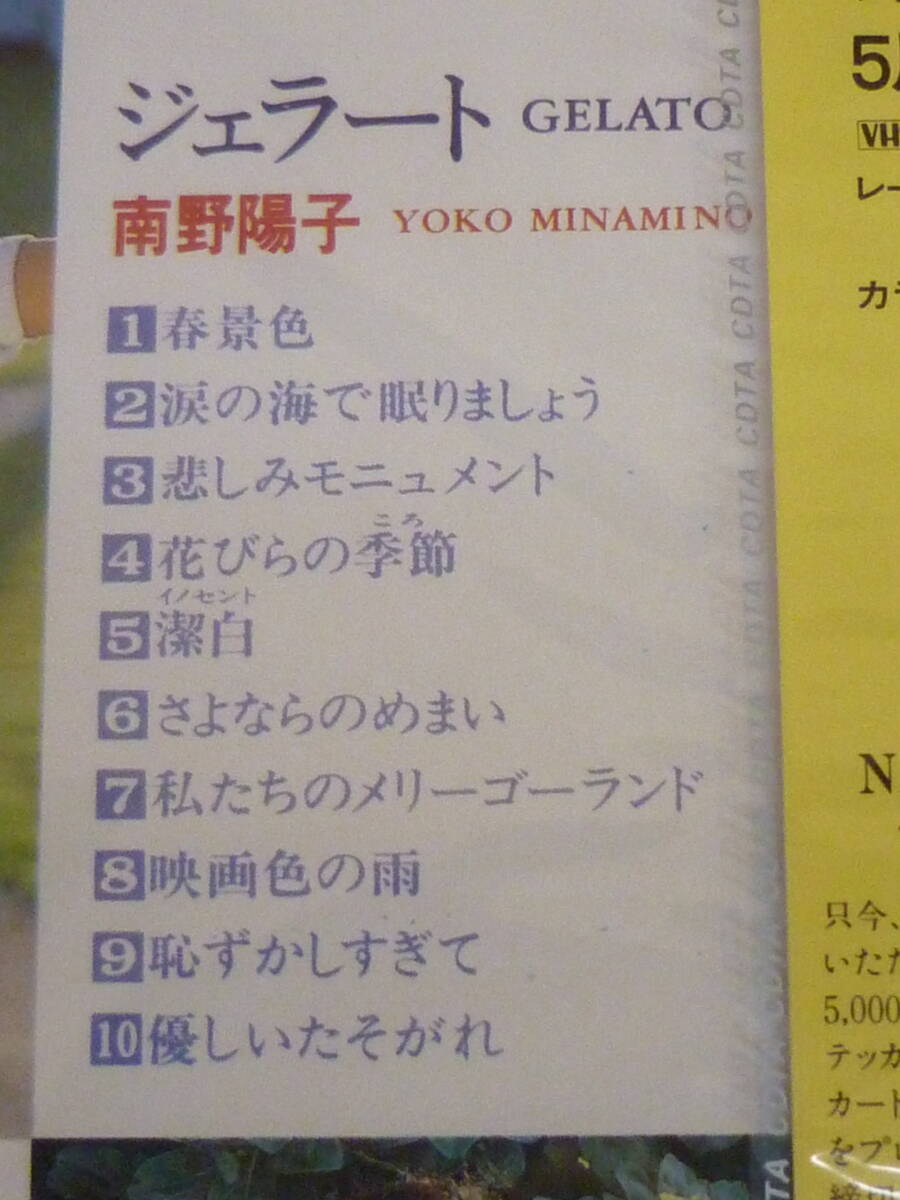 ジェラート GELATO
南野陽子 YOKO MINAMINO
1 春景色
2 涙の海で眠りましょう
3 悲しみモニュメント
ころ
4 花びらの季節
イノセント
5 潔白
6 さよならのめまい
7 私たちのメリーゴーランド
8 映画色の雨
9 恥ずかしすぎて
10 優しいたそがれ
CDTA CDTA CDTA CDTA CDTA CDTA
5
VH
レー
カラ
N
只今、
いただ
5,000
テッカ
カード
をプ